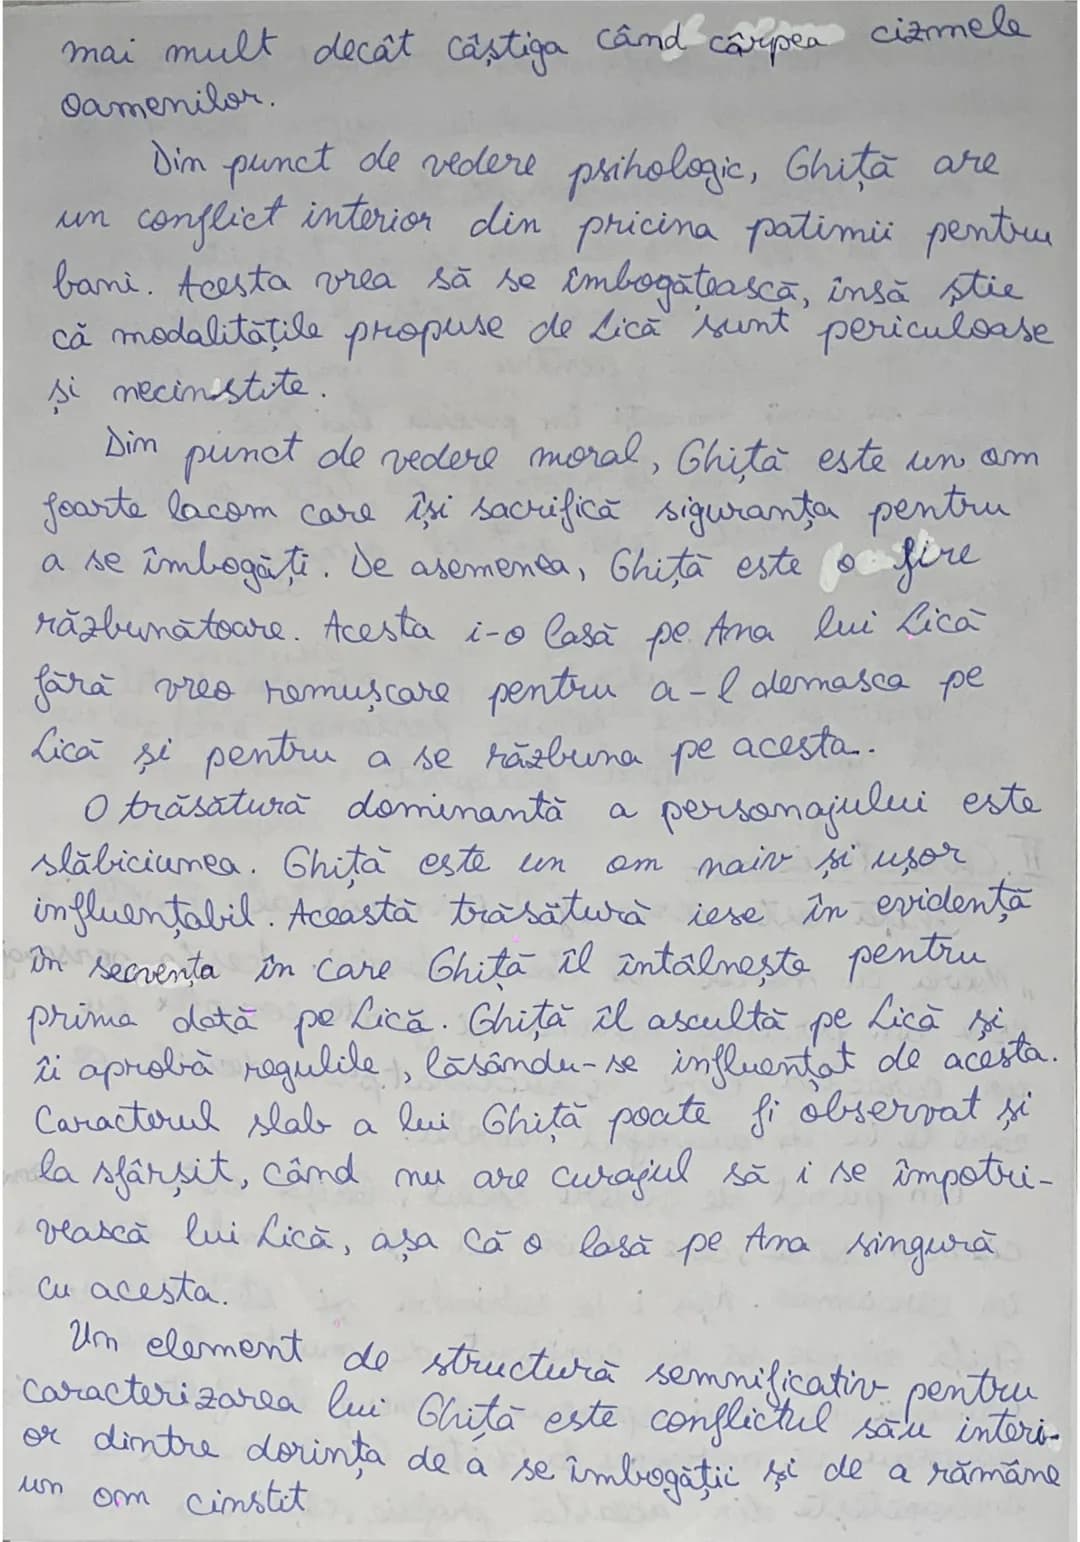 mai mult decât câștiga când cârpea cizmele
oamenilor.
Din punct de vedere psihologic, Ghiță are
un conflict interior din pricina patimii pentru
bani. Acesta vrea să se îmbogățească, însă știe
că modalitățile propuse de Lică sunt periculoase
și necinstite.
Din punct de vedere moral, Ghiță este un om
foarte lacom care își sacrifică siguranța pentru
a se îmbogăți. De asemenea, Ghiță este o fire
răzbunătoare. Acesta i-o lasă pe Ana lui Lică
fără vreo remușcare pentru a-l demasca pe
Lică și pentru a se răzbuna pe acesta.
O trăsătură dominantă a personajului este
slăbiciunea. Ghiță este un om naiv și ușor
influențabil. Această trăsătură iese în evidență
în secvența în care Ghiță îl întâlnește pentru
prima dată pe Lică. Ghiță îl ascultă pe Lică și
îi aprobă regulile, lăsându-se influențat de acesta.
Caracterul slab a lui Ghiță poate fi observat și
la sfârșit, când nu are curajul să i se împotri-
vească lui Lică, așa că o lasă pe Ana singură
cu acesta.
Un element de structură semnificativ pentru
caracterizarea lui Ghiță este conflictul său interi-
or dintre dorința de a se îmbogății și de a rămâne
un om cinstit